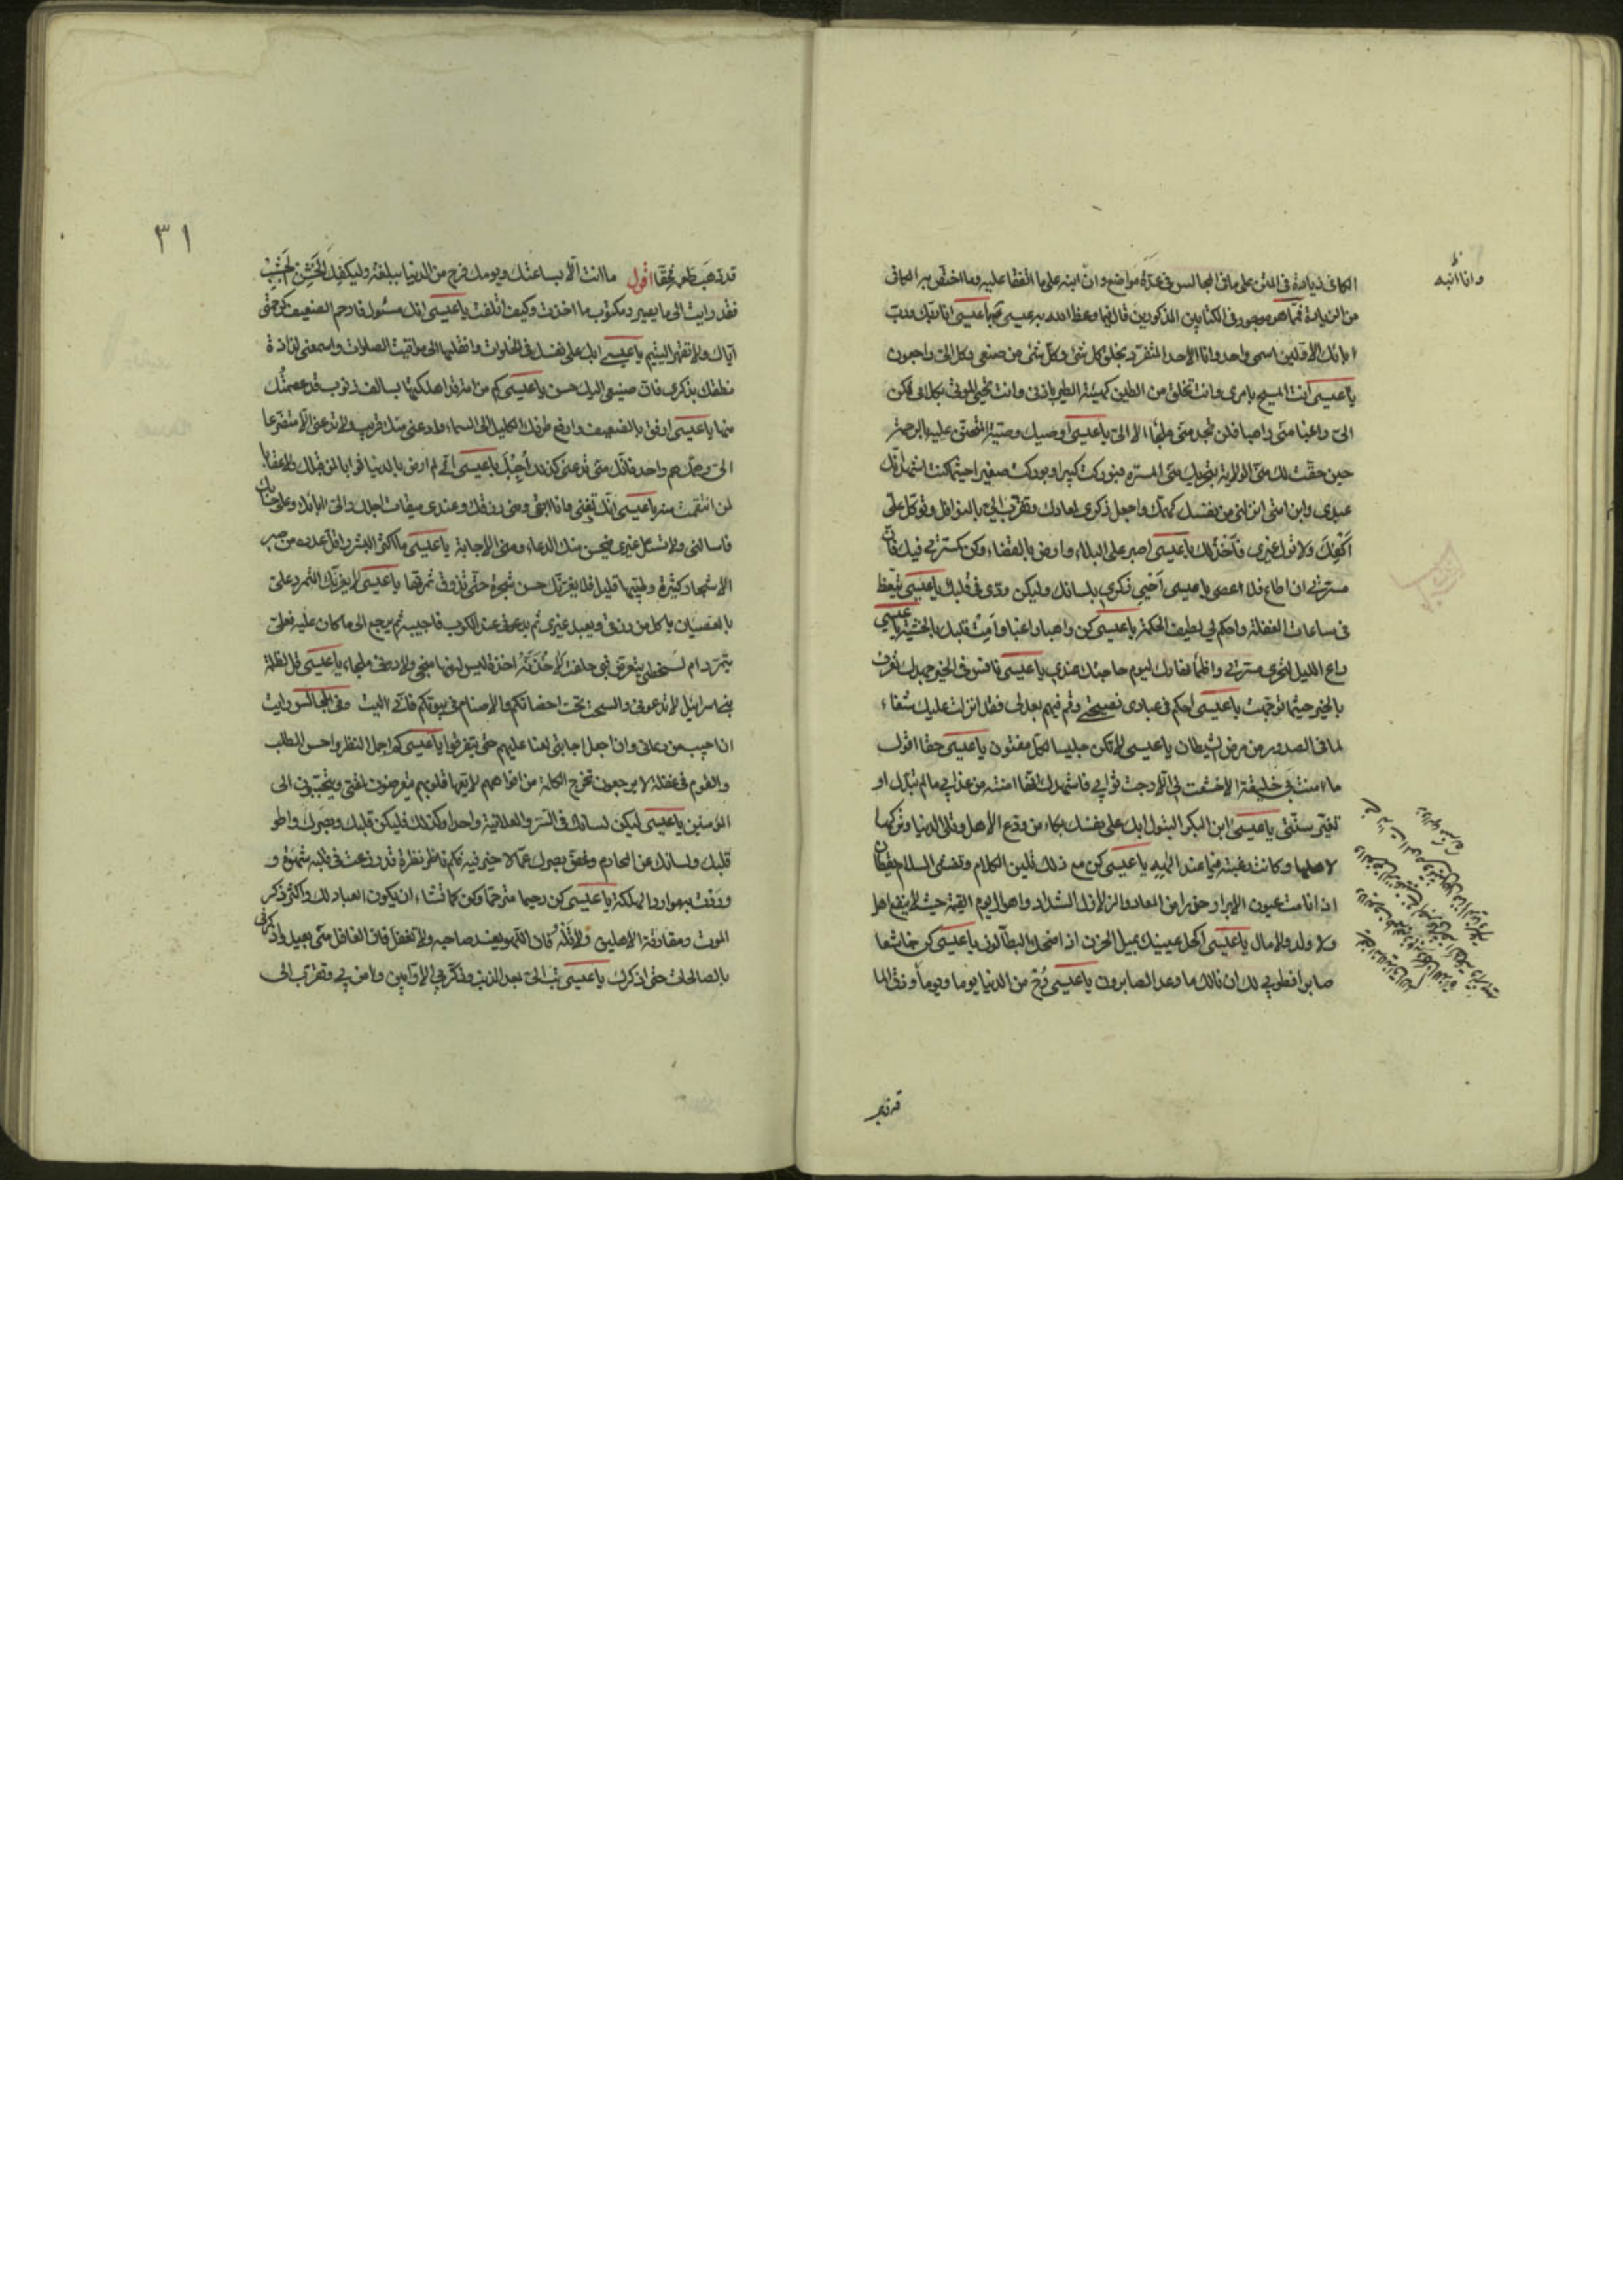 وانا انبه
الكافى زيادة فى المتن على ما فى المجالس فى عدّة مواضع وانّ ابنه على ما اتفقا عليه وما اختصّ به الكافى
من الزيادة فمما هو موجود فى الكتابين المذكورين قال فيما وعظ الله به عيسى يا عيسى انا ربّك وربّ
ابائك الاوّلين اسمى واحد وانا الاحد المتفرّد بخلق كل شئ وكلّ شئ من صنعى وكل الىّ راجعون
يا عيسى انت المسيح بامرى وانت تخلق من الطين كهيئة الطير باذنى وانت تحيى الموتى بكلامى فكن
الىّ راغبا ومنّى راهبا فلن تجد منّى ملجأ الا الىّ يا عيسى اوصيك وصيّة المتحنّن عليك بالرحمة
حين حقّت لك منّى الولاية بتحرّيك منّى المسرّة فبوركت كبيرا وبوركت صغيرا حيثما كنت اشهد انّك
عبدى وابن امتى انزلنى من نفسك كهمّك واجعل ذكرى لمعادك وتقرّب الىّ بالنوافل وتوكّل علىّ
اكفك ولا تولّ غيرى فاخذلك يا عيسى اصبر على البلاء وارض بالقضاء وكن كمسرّتى فيك فانّ
مسرّتى ان اطاع فلا اعصى يا عيسى احى ذكرى بلسانك وليكن ودّى فى قلبك يا عيسى تيقّظ
فى ساعات الغفلة واحكم لى لطيف الحكمة يا عيسى كن راهبا راغبا وامت قلبك بالخشية يا عيسى
راع الليل لتحرّى مسرّتى واظمأ نهارك ليوم حاجتك عندى يا عيسى نافس فى الخير جهدك لتعرف
بالخير حيثما توجّهت يا عيسى احكم فى عبادى بنصحى وقم فيهم بعدلى فقد انزلت عليك شفاء
لما فى الصدور من مرض الشيطان يا عيسى لا تكن جليسا لكلّ مفتون يا عيسى حقا اقول
ما امنت بى خليقة الا خشعت لى ولا خشعت لى الا رجت ثوابى فاشهدك انّها امنة من عذابى ما لم تبدّل او
تغيّر سنّتى يا عيسى ابن البكر البتول ابك على نفسك بكاء من ودّع الاهل وقلى الدنيا وتركها
لاهلها وكانت رغبته فيما عند الهه يا عيسى كن مع ذلك تلين الكلام وتفشى السلام يقظان
اذا نامت عيون الابرار حذرا من المعاد والزلازل الشداد واهوال يوم القيمة حيث لا ينفع اهل
ولا ولد ولا مال يا عيسى اكحل عينيك بميل الحزن اذا ضحك البطّالون يا عيسى كن خاشعا
صابرا فطوبى لك ان نالك ما وعد الصابرون يا عيسى رح من الدنيا يوما ويوما وذق لما
٣١
قد ذهب طعمه فحقّا اقول ما انت الّا بساعتك ويومك فرح من الدنيا ببلغة وليكفك الخشن الجشب
فقد رايت الى ما يصير ومكتوب ما اخذت وكيف اتلفت يا عيسى انك مسئول فارحم الضعيف كرحمتى
ايّاك ولا تقهر اليتيم يا عيسى ابك على نفسك فى الخلوات وانقل قدميك الى مواقيت الصلوات واسمعنى لذاذة
نطقك بذكرى فانّ صنيعى اليك حسن يا عيسى كم من امة قد اهلكتها بسالف ذنوب قد عصمتك
منها يا عيسى ارفق بالضعيف وارفع طرفك الكليل الى السماء وادعنى فانى منك قريب ولا تدعنى الّا متضرّعا
الىّ وهمّك همّ واحد فانّك متى تدعنى كذلك اجبك يا عيسى انّى لم ارض بالدنيا ثوابا لمن قبلك ولا عقابا
لمن انتقمت منه يا عيسى انّك تفنى وانا ابقى ومنّى رزقك وعندى ميقات اجلك والىّ ايابك وعلىّ حسابك
فاسالنى ولا تسئل غيرى فيحسن منك الدعاء ومنّى الاجابة يا عيسى ما اكثر البشر واقلّ عدد من صبر
الاشجار كثيرة وطيّبها قليل فلا يغرّنّك حسن شجرة حتّى تذوق ثمرتها يا عيسى لا يغرّنّك المتمرّد علىّ
بالعصيان ياكل من رزقى ويعبد غيرى ثم يدعونى عند الكرب فاجيبه ثم يرجع الى ما كان عليه فعلىّ
يتمرّد ام لسخطى يتعرّض فبى حلفت لاخذنّه اخذة ليس له منها منجى ولا دونى ملجاء يا عيسى قل لظلمة
بنى اسرائيل لا تدعونى والسحت تحت احضانكم والاصنام فى بيوتكم فانّى اليت وفى المجالس رايت
ان اجيب من دعانى وان اجعل اجابتى لعنا عليهم حتى يتفرقوا يا عيسى كم اجمل النظر واحسن الطلب
والقوم فى غفلة لا يرجعون تخرج الكلمة من افواههم لا تعيها قلوبهم يتعرضون لمقتى ويتحبّبون الى
المؤمنين يا عيسى ليكن لسانك فى السرّ والعلانية واحدا وكذلك فليكن قلبك وبصرك واطو
قلبك ولسانك عن المحارم وغضّ بصرك عمّا لا خير فيه فكم ناظر نظرة قد زرعت فى قلبه شهوة و
وردت به موارد الهلكة يا عيسى كن رحيما مترحّما وكن كما تشاء ان يكون العباد لك واكثر ذكر
الموت ومفارقة الاهلين ولا تله فانّ اللهو يفسد صاحبه ولا تغفل فانّ الغافل منّى بعيد واذكرنى
بالصالحات حتى اذكرك يا عيسى تب الىّ بعد الذنب وذكّر بى الاوّابين وامن بى وتقرّب الى